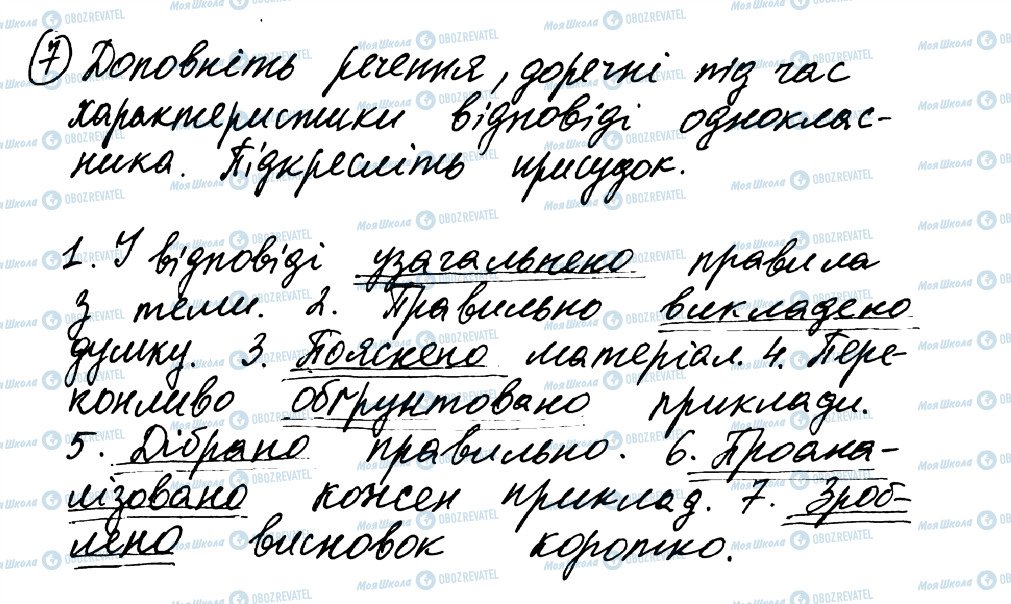 7 Доповніть речення, доречні під час
характеристики відповіді однокласника-
ника. Підкресліть присудок.
1. У відповіді узагальнено правила
з теми. 2. Правильно викладено
думку. 3. Пояснено матеріал. 4. Пере-
конливо обґрунтовано приклади.
5. Дібрано правильно. 6. Проана-
лізовано кожен приклад. 7. Зроб-
лено висновок коротко.